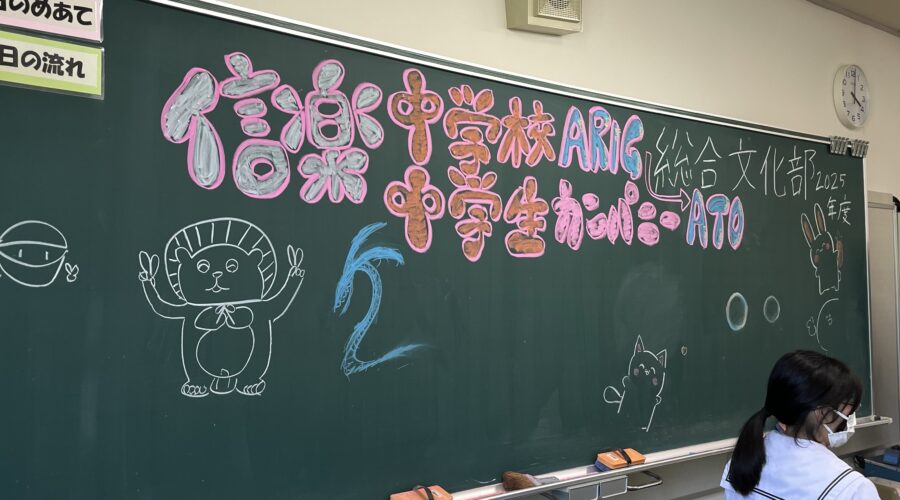 のめあて
日の流れ
信楽中学校ARIG
中学生カンパニーATO
総合文化部
2025
年度